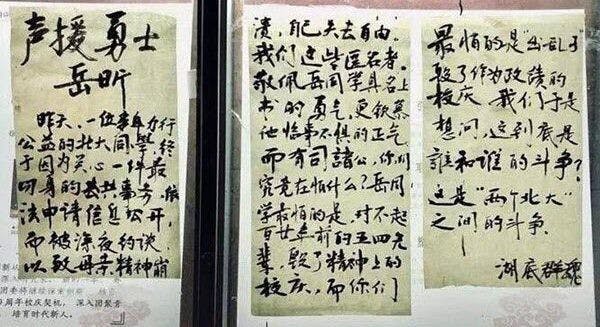 声援勇士
岳昕
昨天，一位事奉力行
公益的北大同学终
于因为关心一件最
切身的公共事务，依
法申请信息公开，
而被深夜约谈
以致母亲精神崩
溃，自己失去自由。
我们这些匿名者，
敬佩岳同学具名上
书的勇气，更钦慕
他临事不惧的正气。
而有司諸公，你们
究竟在怕什么？岳同
学最怕的是，对不起
百廿年前的五四先
辈，毁了精神上的
校庆，而你们
最怕的是“出乱子”
毁了作为政绩的
校庆。我们于是
想问，这到底是
誰和谁的斗争？
这是“两个北大”
之间的斗争。
湖底群魂
周年校庆契机，深入团聚青
培育时代新人。